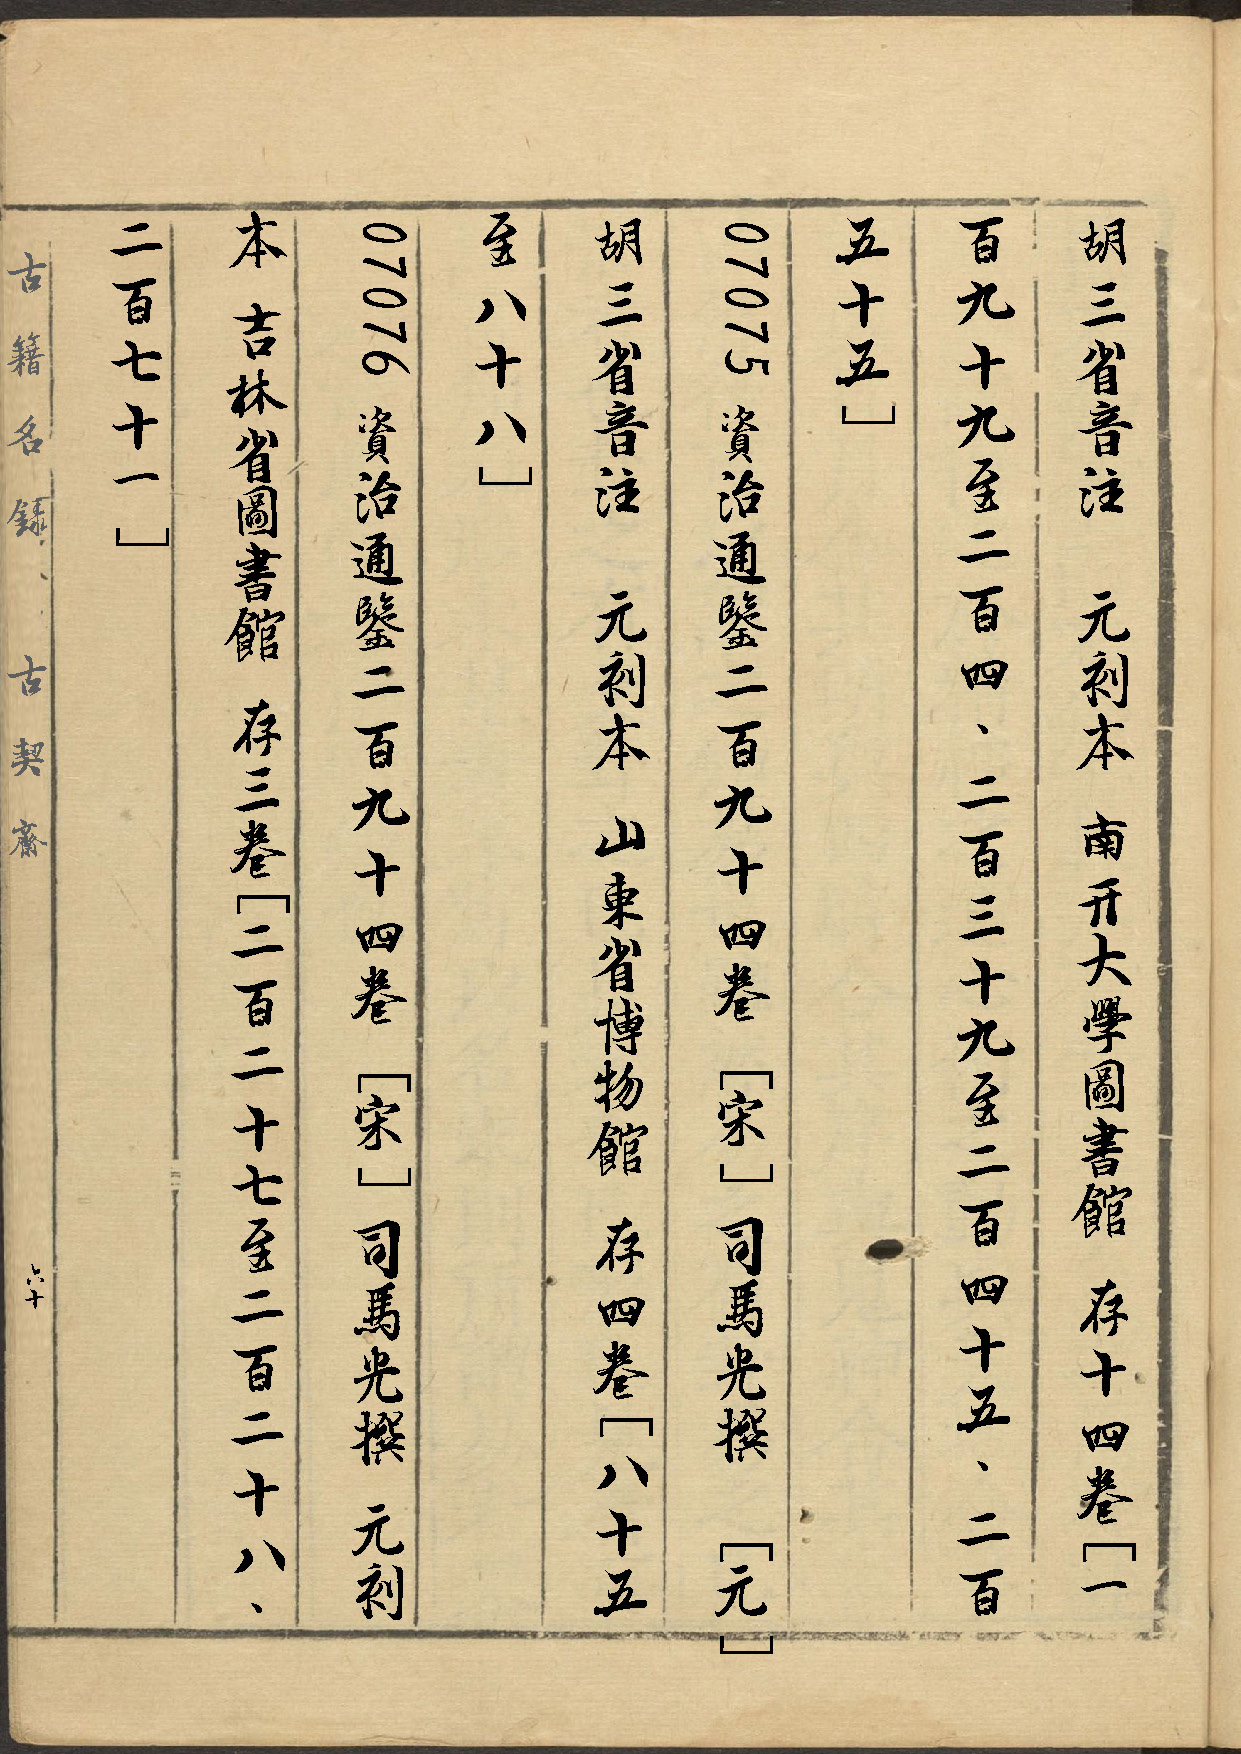 胡三省音注　元刻本　南开大學圖書館　存十四卷[一
百九十九至二百四、二百三十九至二百四十五、二百
五十五]
07075 資治通鑒二百九十四卷　[宋]司馬光撰　[元]
胡三省音注　元刻本　山東省博物館　存四卷[八十五
至八十八]
07076 資治通鑒二百九十四卷　[宋]司馬光撰　元刻
本　吉林省圖書館　存三卷[二百二十七至二百二十八、
二百七十一]
古籍名録、、古契齋
六十